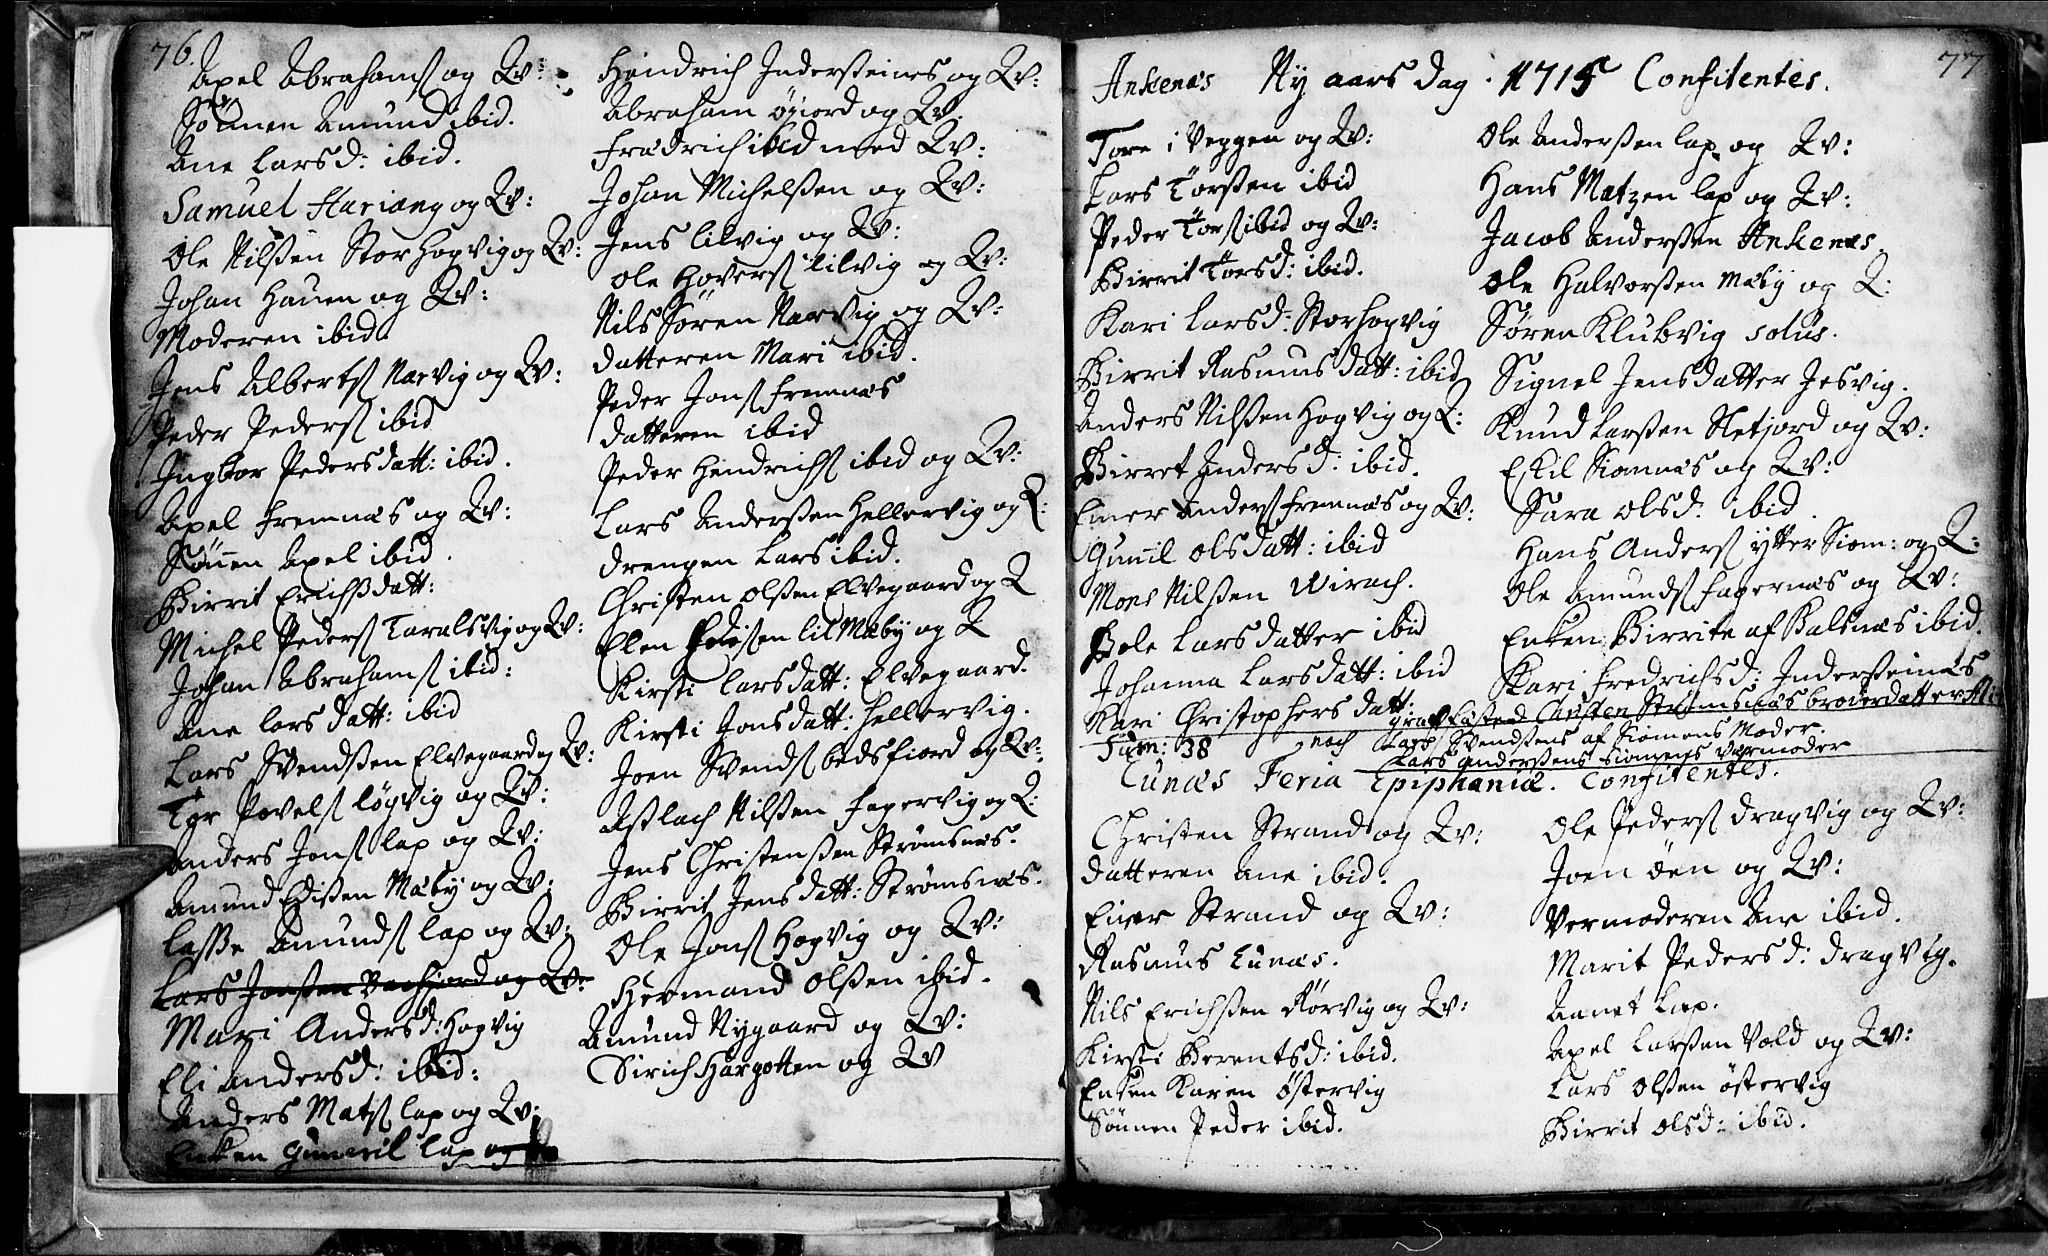 76.
Axel Abrahams og Qv:
Sönnen Amund ibid.
Ane Larsd: ibid.
Samuel Hariang og Qv:
Ole Nilßen Storhogvig og Qv:
Johan Hauen og Qv:
Moderen ibid.
Jens Alberts Narvig og Qv:
Peder Peders ibid
Ingbor Pedersdatt: ibid.
Axel Fremnæs og Qv:
Sönnen Axel ibid.
Birrit Erichßdatt:
Michel Peders Taralsvig og Qv:
Johan Abrahams ibid:
Ane Lars datt: ibid
Lars Svendßen Elvegaard og Qv:
Tor Povels löyvig og Qv:
Anders Jons lap og Qv:
Amund Edißen Mæby og Qv:
Lasse Amunds lap og Qv:
Lars Jonßen og Qv:
Mari Andersd: Hogvig
Eli Andersd: ibid:
Anders Mats lap og Qv:
Enken Gunnil lap og
Hendrich Indersteines og Qv:
Abraham öyiord og Qv.
Fredrich ibid med Qv:
Johan Michelßen og Qv:
Jens lilvig og Qv:
Ole Hovers lilvig og Qv:
Nils Sören Narvig og Qv:
datteren Mari ibid.
Peder Jons Fremnæs
datteren ibid
Peder Hendrichs ibid og Qv:
Lars Anderßen Hellervig og Q:
drengen Lars ibid.
Christen Olßen Elvegaard og Q
Elen lil Mæby og Q
Kirsti Larsdatt: Elvegaard.
Kirsti Jonsdatt: Hellervig.
Joen Svends bedsfiord og Qv:
Aßlach Nilßen Fagervig og Q:
Jens Christenßen Strömsnæs.
Birrit Jensdatt: Strömsnæs.
Ole Jons Hogvig og Qv:
Hermand Olßen ibid.
Amund Nygaard og Qv:
Sirich Hargotten og Qv
77
Ankenæs Ny aars dag. 1715 Confitentes.
Tore i Veggen og Qv:
Lars Törßen ibid
Peder Törs ibid og Qv:
Birrit Torsd: ibid.
Kari Larsd: Storhogvig
Birrit Rasmus datt: ibid
Anders Nilßen Hogvig og Q:
Birret Andersd: ibid.
Einer Anders Fremnæs og Qv:
Gunnil Olsdatt: ibid
Mons Nilßen Wirach.
Bole Larsdatter ibid
Johanna Larsdatt: ibid
Kari Christophersdatt:
Sum: 38
Ole Anderßen lap og Qv:
Hans Matzen lap og Qv:
Jacob Anderßen Ankenæs.
Ole Halvorßen Mæby og Q:
Sören Klubvig solus.
Signel Jensdatter Jesvig.
Knud Larßen Sletjord og Qv:
Eskil Siomnæs og Qv:
Sara Olsd: ibid.
Hans Anders ytter Siom: og Q:
Ole Amunds Fagernæs og Qv:
Enken Birrite af Balsnæs ibid.
Kari Fredrichsd: Indersteinæs
Carsten Strömsnæs broderdatter
noch Lars Svendßens af Siomens Moder.
Lars Anderßens Siomens Vermoder
Lunæs Feria Epiphaniæ. Confitentes.
Christen Strand og Qv:
datteren Ane ibid.
Einer Strand og Qv:
Rasmus Lunæs.
Nils Erichßen Rörvig og Qv:
Kirsti Berentsd: ibid.
Enken Karen Östervig
Sönnen Peder ibid.
Ole Peders dragvig og Qv:
Joen öen og Qv:
Vermoderen Ane ibid.
Marit Pedersd: dragvig.
Annet Lap.
Axel Larßen Vold og Qv:
Lars Olßen östervig
Birrit Olsd: ibid.